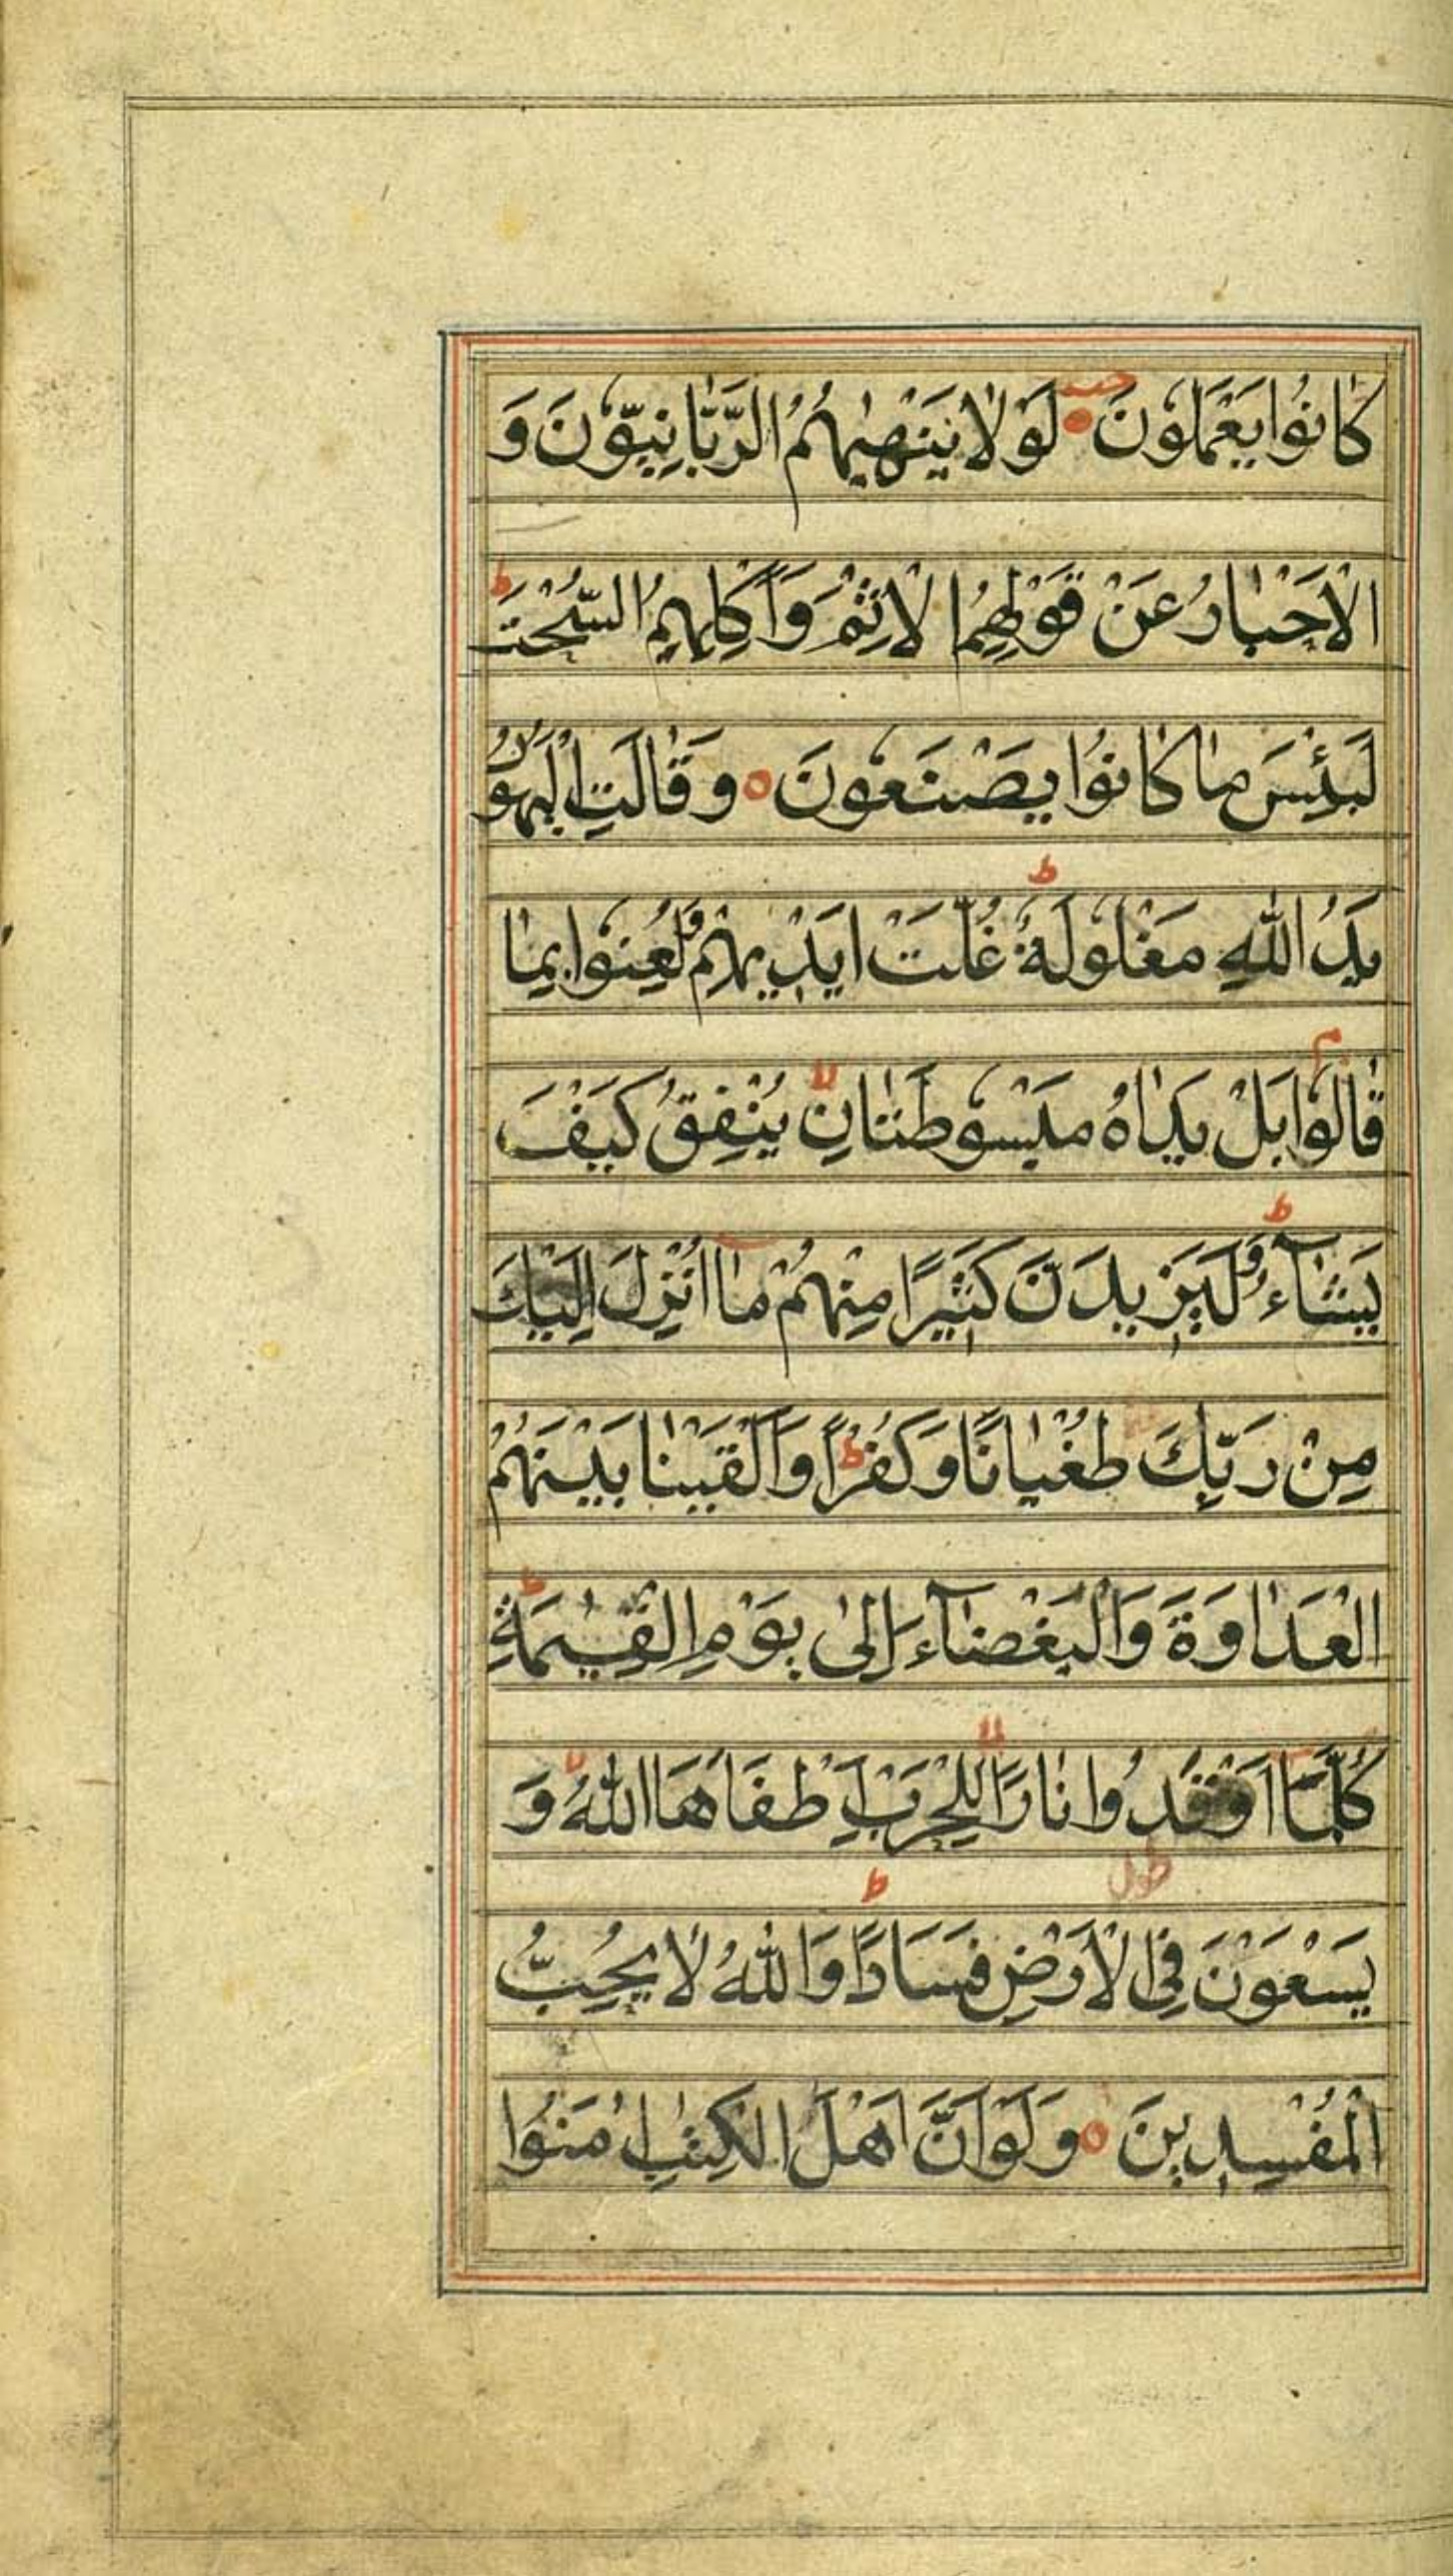 كَانُوا يَعْمَلُونَ ۝ لَوْلَا يَنْهٰيهُمُ الرَّبَّانِيُّونَ وَ
الْاَحْبَارُ عَنْ قَوْلِهِمُ الْاِثْمَ وَاَكْلِهِمُ السُّحْتَ ط
لَبِئْسَ مَا كَانُوا يَصْنَعُونَ ۝ وَقَالَتِ الْيَهُودُ
يَدُ اللّٰهِ مَغْلُولَةٌ ط غُلَّتْ اَيْدِيهِمْ وَلُعِنُوا بِمَا
قَالُوا م بَلْ يَدَاهُ مَبْسُوطَتَانِ لا يُنْفِقُ كَيْفَ
يَشَآءُ ط وَلَيَزِيدَنَّ كَثِيرًا مِنْهُمْ مَآ اُنْزِلَ اِلَيْكَ
مِنْ رَبِّكَ طُغْيَانًا وَكُفْرًا ط وَاَلْقَيْنَا بَيْنَهُمُ
الْعَدَاوَةَ وَالْبَغْضَآءَ اِلٰى يَوْمِ الْقِيٰمَةِ ط
كُلَّمَآ اَوْقَدُوا نَارًا لِلْحَرْبِ اَطْفَاَهَا اللّٰهُ لا وَ
يَسْعَوْنَ فِي الْاَرْضِ فَسَادًا ط وَاللّٰهُ لَا يُحِبُّ
الْمُفْسِدِينَ ۝ وَلَوْ اَنَّ اَهْلَ الْكِتٰبِ اٰمَنُوا